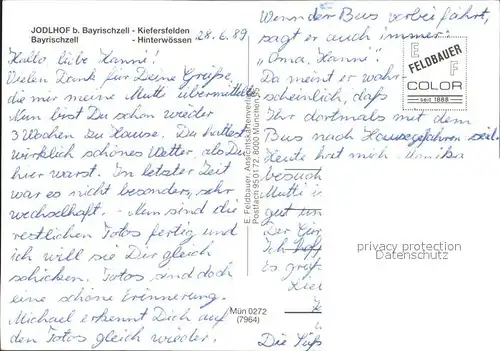 JODLHOF b. Bayrischzell - Kiefersfelden
Bayrischzell - Hinterwössen
28.6.89
Hallo liebe Hanni!
Vielen Dank für Deine Grüße,
die mir meine Mutti übermittelte.
Nun bist Du schon wieder
3 Wochen zu Hause. Du hattest
wirklich schönes Wetter, als Du
hier warst. In letzter Zeit
war es nicht besonders, sehr
wechselhaft. - Nun sind die
restlichen Fotos fertig und
ich will sie Dir gleich
schicken. Fotos sind doch
eine schöne Erinnerung.
Michael erkennt Dich auf
den Fotos gleich wieder.
Mün 0272
(7964)
E. Feldbauer, Ansichtskartenverlag
Postfach 95 01 72, 8000 München 95
Wenn der Bus vorbei fährt,
sagt er auch immer:
"Oma, Hanni".
Da meint er wahr-
scheinlich, daß
Ihr dortmals mit dem
Bus nach Hause gefahren seid.
Heute hat mich Monika
besuch
Mutti i
gut un
Der
Ich hoff
Es
Die Süß
E
F
FELDBAUER
COLOR
seit 1888
privacy protection
Datenschutz